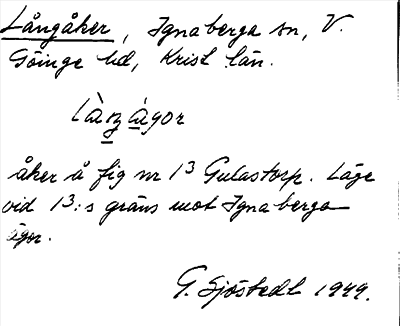 Långåker, Ignaberga sn, V.
Göinge hd, Krist. län.
åker å fig nr 13 Gulastorp. Läge
vid 13:s gräns mot Ignaberga
ägor.
G. Sjöstedt 1949.